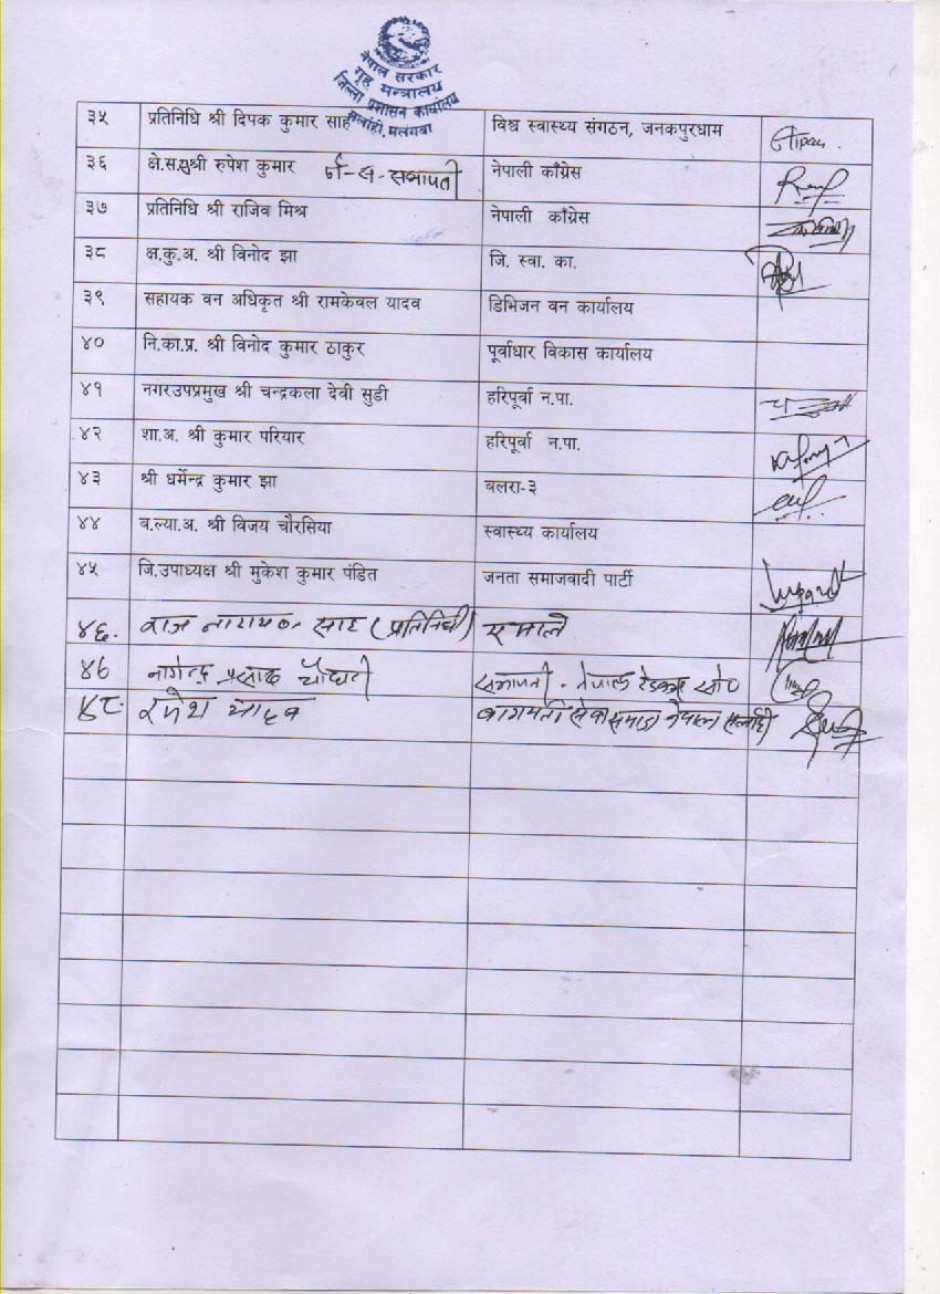 नेपाल सरकार
गृह मन्त्रालय
जिल्ला प्रशासन कार्यालय
सर्लाही, मलंगवा
३५ प्रतिनिधि श्री दिपक कुमार साह विश्व स्वास्थ्य संगठन, जनकपुरधाम
३६ क्षे.स.सुश्री रुपेश कुमार नेपाली काँग्रेस
३७ प्रतिनिधि श्री राजिव मिश्र नेपाली काँग्रेस
३८ क्ष.कु.अ. श्री विनोद झा जि. स्वा. का.
३९ सहायक वन अधिकृत श्री रामकेवल यादव डिभिजन वन कार्यालय
४० नि.का.प्र. श्री विनोद कुमार ठाकुर पूर्वाधार विकास कार्यालय
४१ नगरउपप्रमुख श्री चन्द्रकला देवी सुडी हरिपूर्वा न.पा.
४२ शा.अ. श्री कुमार परियार हरिपूर्वा न.पा.
४३ श्री धर्मेन्द्र कुमार झा बलरा-३
४४ ब.ल्या.अ. श्री विजय चौरसिया स्वास्थ्य कार्यालय
४५ जि.उपाध्यक्ष श्री मुकेश कुमार पंडित जनता समाजवादी पार्टी
४६. राज नारायण साह (प्रतिनिधी) एमाले
४७ नागेन्द्र प्रसाद चौधरी सभापती - नेपाल रेडक्रस
४८. रमेश यादव बागमती सेवा समाज नेपाल सर्लाही